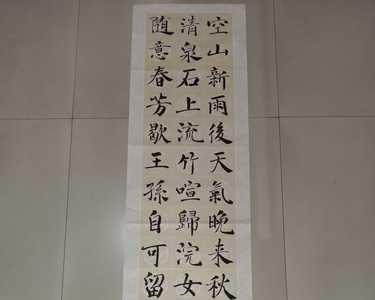 空山新雨後天氣晚来秋
清泉石上流竹喧歸浣女
随意春芳歇王孫自可留